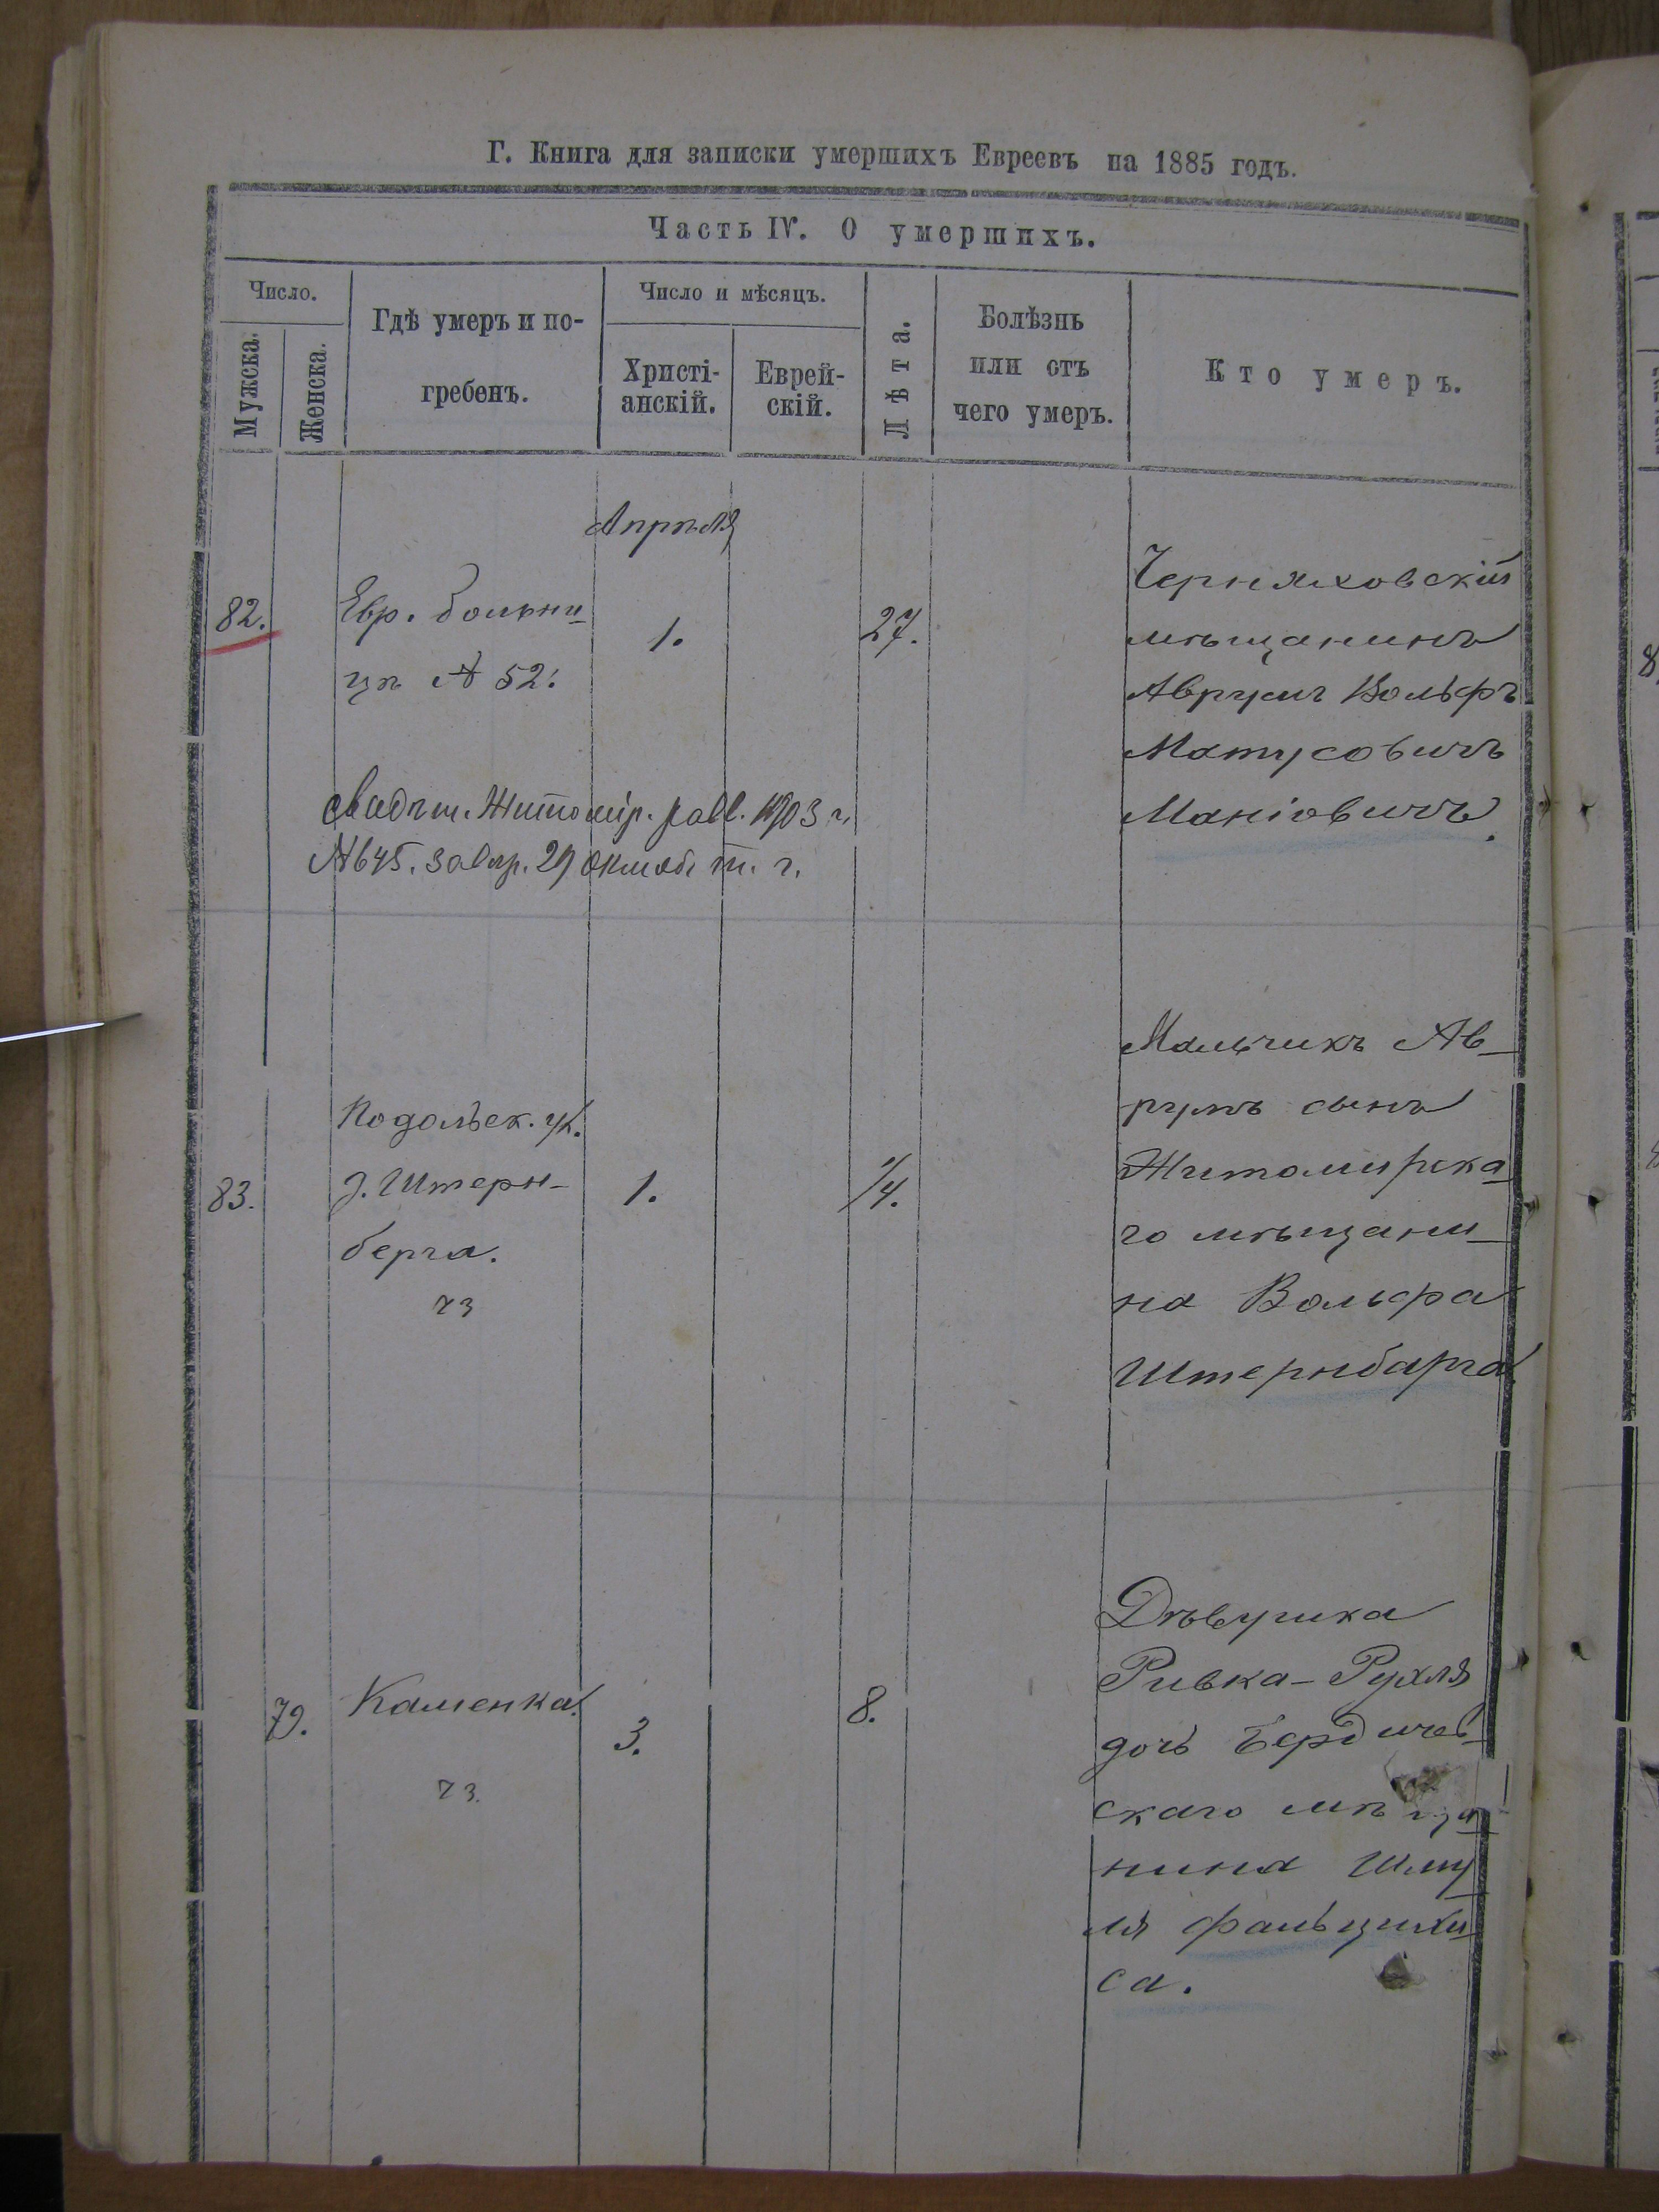 Г. Книга для записки умершихъ Евреевъ на 1885 годъ.
Часть IV. О умершихъ.
Число.
Мужска.
Женска.
Гдѣ умеръ и по-
гребенъ.
Число и мѣсяцъ.
Христі-
анскій.
Еврей-
скій.
Лѣта.
Болѣзнь
или отъ
чего умеръ.
Кто умеръ.
Апрѣля
82.
Евр. больни-
цѣ № 52.
1.
27.
Черняховскій
мѣщанинъ
Аврумъ Вольфъ
Матусовичъ
Маніовичъ.
свидѣт. Житомір. равв. 1903 г.
№ 645. завѣр. 29 Октяб. т. г.
83.
Подольск. ул.
Штерн-
берга.
73
1.
1/4.
Мальчикъ Ав-
румъ сынъ
Житомирска-
го мѣщани-
на Вольфа
Штернбарга.
79.
Каменка.
73.
3.
8.
Дѣвушка
Ривка-Рухля
дочь Бердичев-
скаго мѣща-
нина Шму-
ля
са.